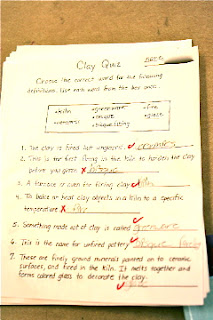 Clay Quiz
Choose the correct word for the following
definitions. Use each word from the box once.
•kiln •greenware •fire
•ceramics •bisque •glaze
•bisque firing
1. The clay is fired but unglazed. ceramics
2. This is the first firing in the kiln to harden the clay
before you glaze bisque
3. A furnace or oven for firing clay kiln
4. To bake or heat clay objects in a kiln to a specific
temperature fire
5. Something made out of clay is called greenware
6. This is the name for unfired pottery bisque firing
7. These are finely ground minerals painted on to ceramic
surfaces, and fired in the kiln. It melts together and
forms colored glass to decorate the clay.
glaze